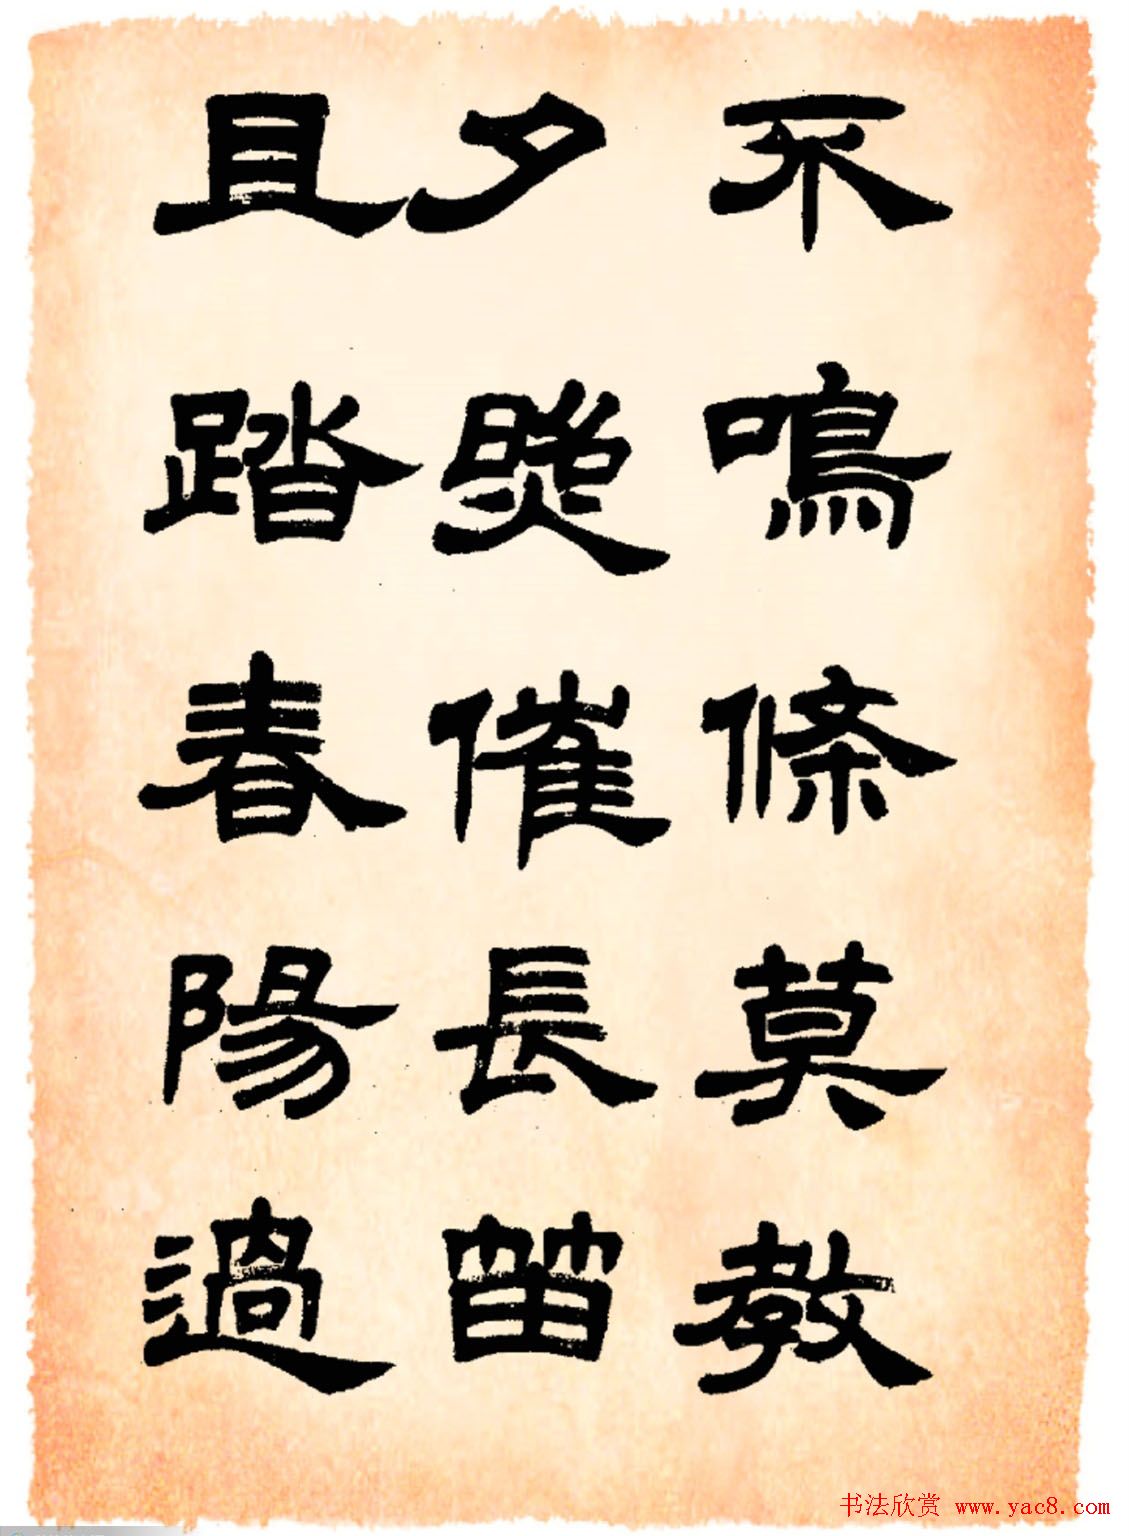 不鳴條莫教
夕照催長笛
且踏春陽過
书法欣赏 www.yac8.com